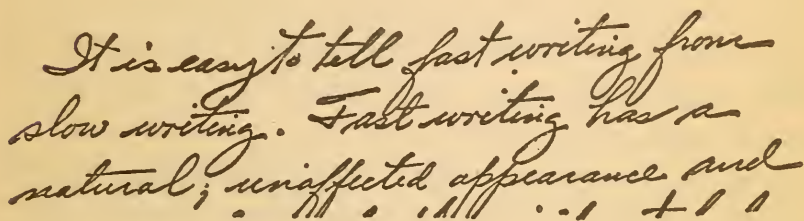 It is easy to tell fast writing from
slow writing. Fast writing has a
natural, unaffected appearance and